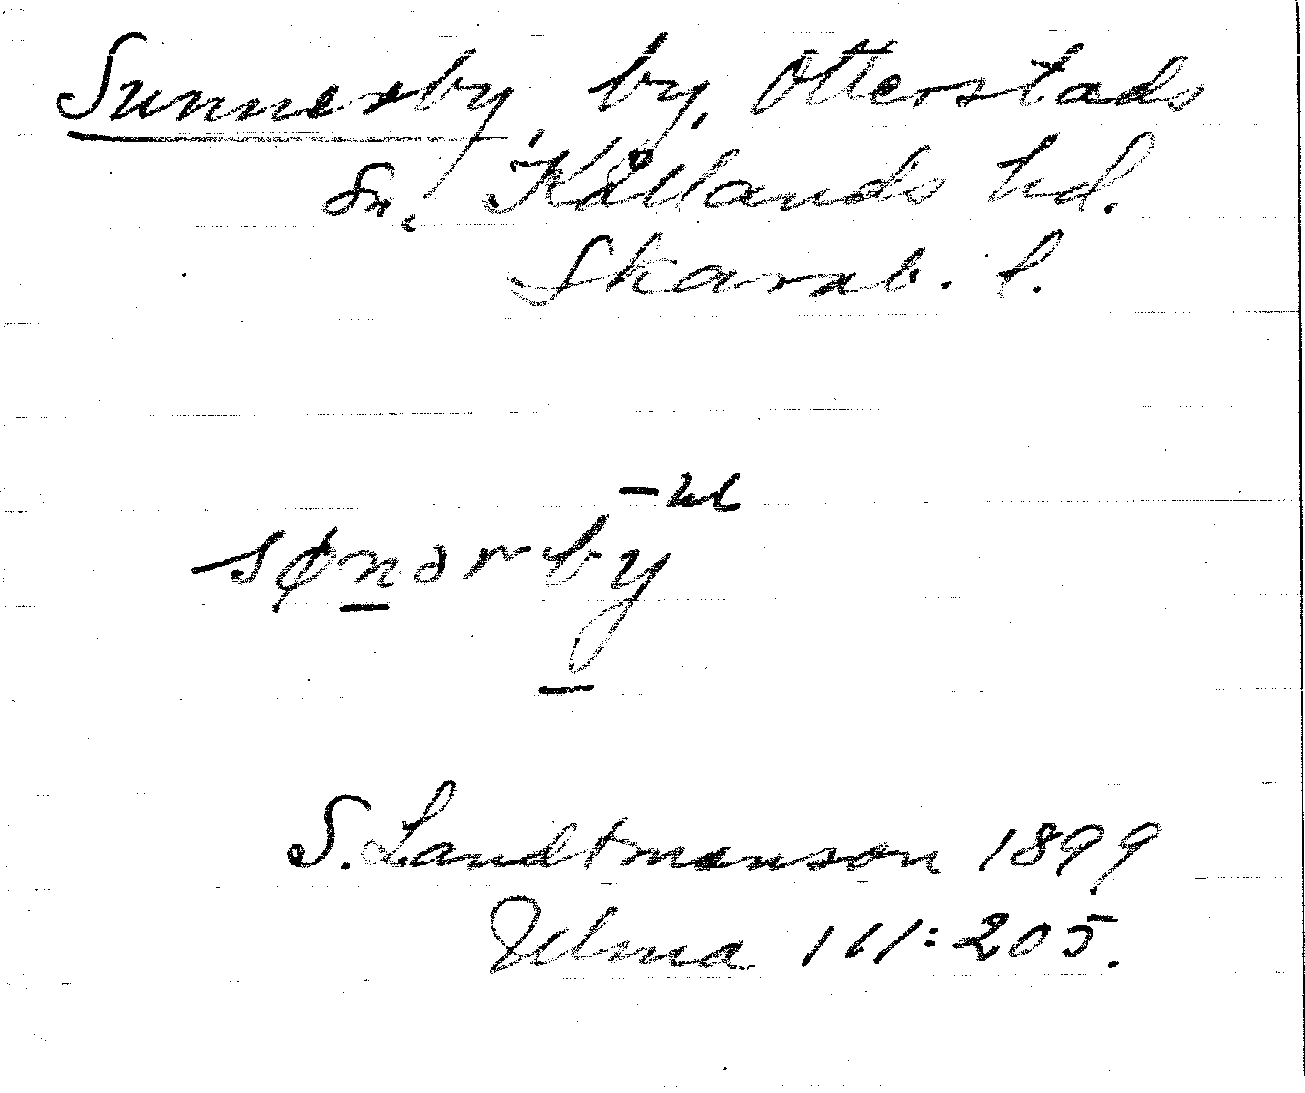 Sunnerby, by, Otterstads
sn, Kållands hd.
Skarab. l.
sønərby
S. Landtmanson 1899
Ulma 161:205.